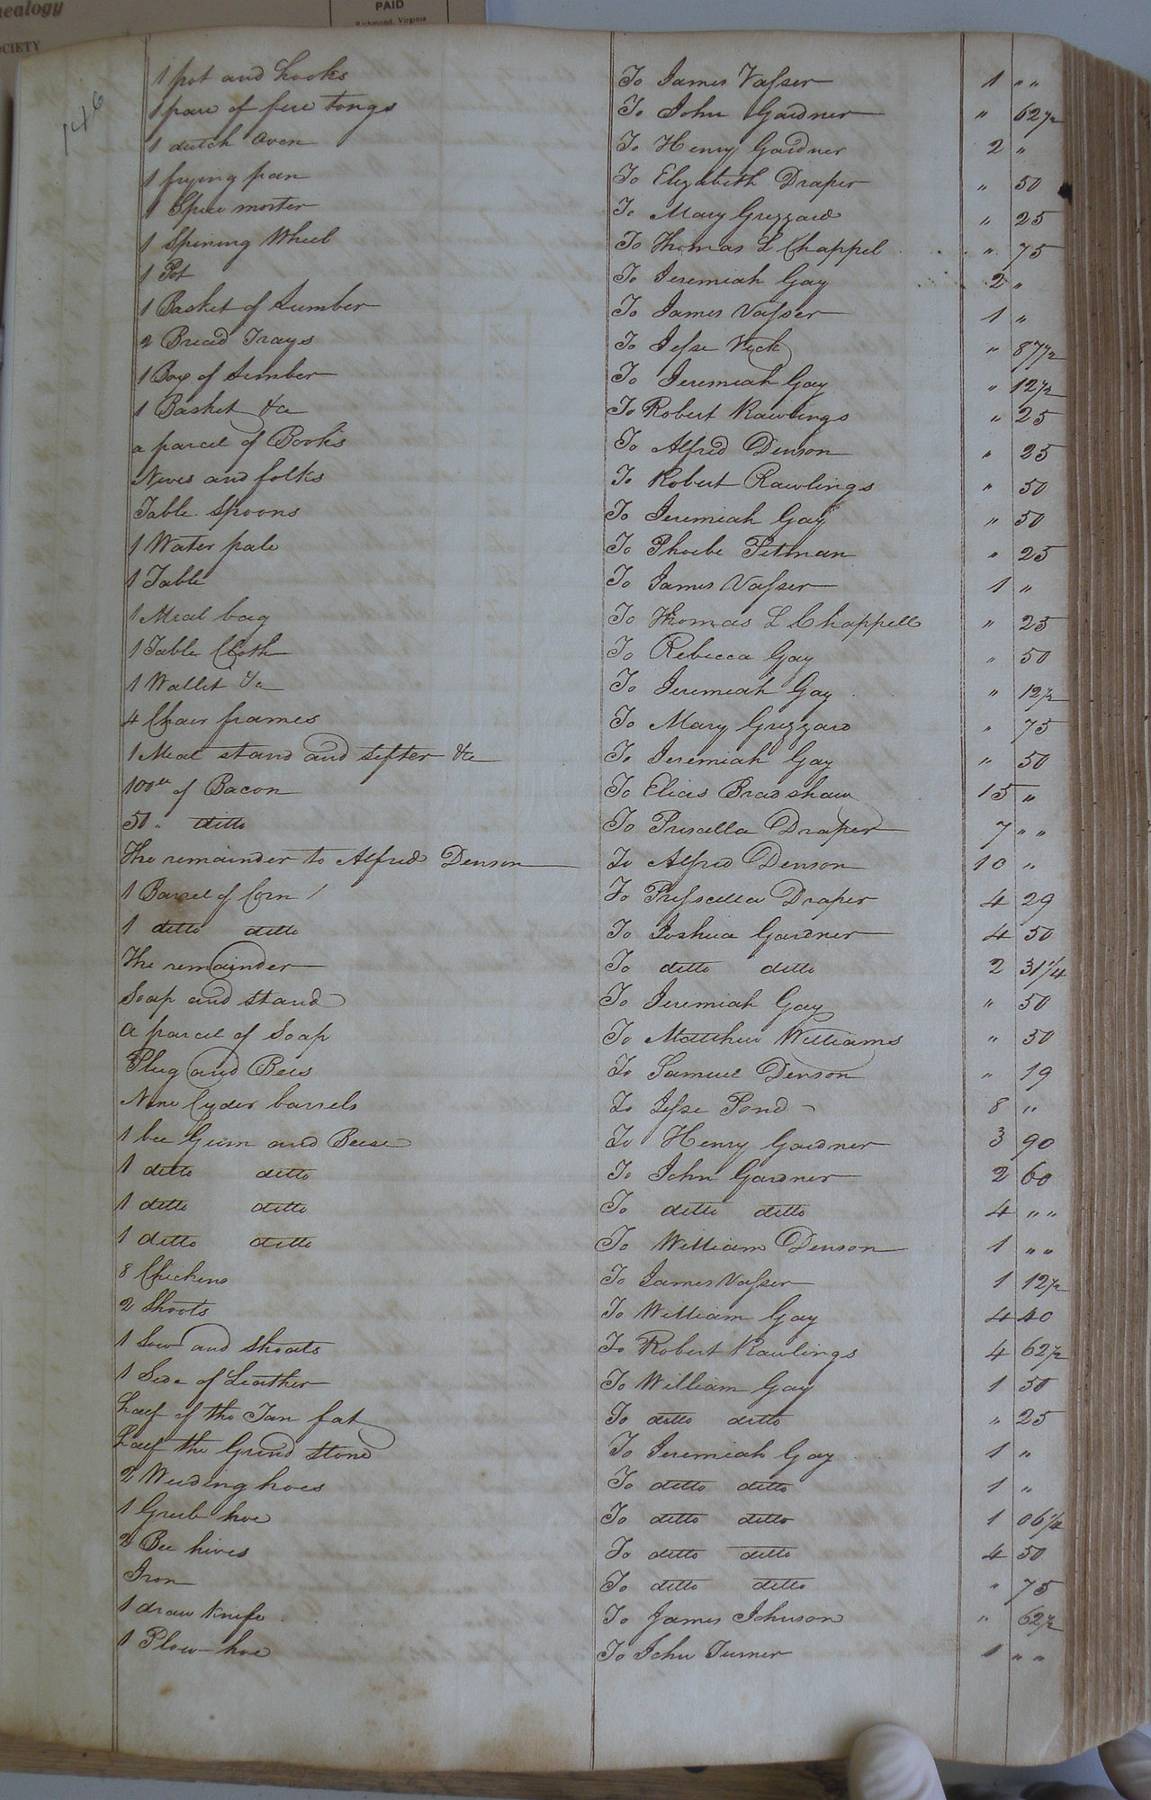 nealogy
OCIETY
PAID
Richmond, Virginia
146
1 pot and hooks To James Vasser 1 " "
1 pare of fire tongs To John Gardner " 62½
1 dutch Oven To Henry Gardner 2 "
1 frying pan To Elizabeth Draper " 50
1 Spice morter To Mary Grizzard " 25
1 Spining Wheel To Thomas L Chappel " 75
1 Pot To Jeremiah Gay 2 "
1 Basket of Lumber To James Vasser 1 "
2 Bread Trays To Jesse Vick " 87½
1 Box of Lumber To Jeremiah Gay " 12½
1 Basket &c To Robert Rawlings " 25
a parcel of Books To Alfred Denson " 25
Nives and folks To Robert Rawlings " 50
Table Spoons To Jeremiah Gay " 50
1 Water pale To Phoebe Pitman " 25
1 Table To James Vasser 1 "
1 Meal bag To Thomas L Chappell " 25
1 Table Cloth To Rebecca Gay " 50
1 Wallet &c To Jeremiah Gay " 12½
4 Chair frames To Mary Grizzard " 75
1 Meal stand and sifter &c To Jeremiah Gay " 50
100 lb of Bacon To Elias Bradshaw 15 "
50 " ditto To Priscilla Draper 7 " "
The remainder to Alfred Denson To Alfred Denson 10 "
1 Barrel of Corn / To Prisscilla Draper 4 29
1 ditto ditto To Joshua Gardner 4 50
The remainder To ditto ditto 2 31¼
Soap and stand To Jeremiah Gay " 50
a parcel of Soap To Matthew Williams " 50
Plug and Bees To Samuel Denson " 19
Nine Cyder barrels To Jesse Pond 8 "
1 bee Gum and Beese To Henry Gardner 3 90
1 ditto ditto To John Gardner 2 60
1 ditto ditto To ditto ditto 4 " "
1 ditto ditto To William Denson 1 " "
8 Chickens To James Vasser 1 12½
2 Shoots To William Gay 4 40
1 Sow and shoats To Robert Rawlings 4 62½
1 Side of Leather To William Gay 1 50
half of the Tan fat To ditto ditto " 25
half the Grind stone To Jeremiah Gay 1 "
2 Weeding hoes To ditto ditto 1 "
1 Grub hoe To ditto ditto 1 06¼
2 Bee hives To ditto ditto 4 50
Iron To ditto ditto " 75
1 draw Knife To James Johnson " 62½
1 Plow hoe To John Turner 1 " "